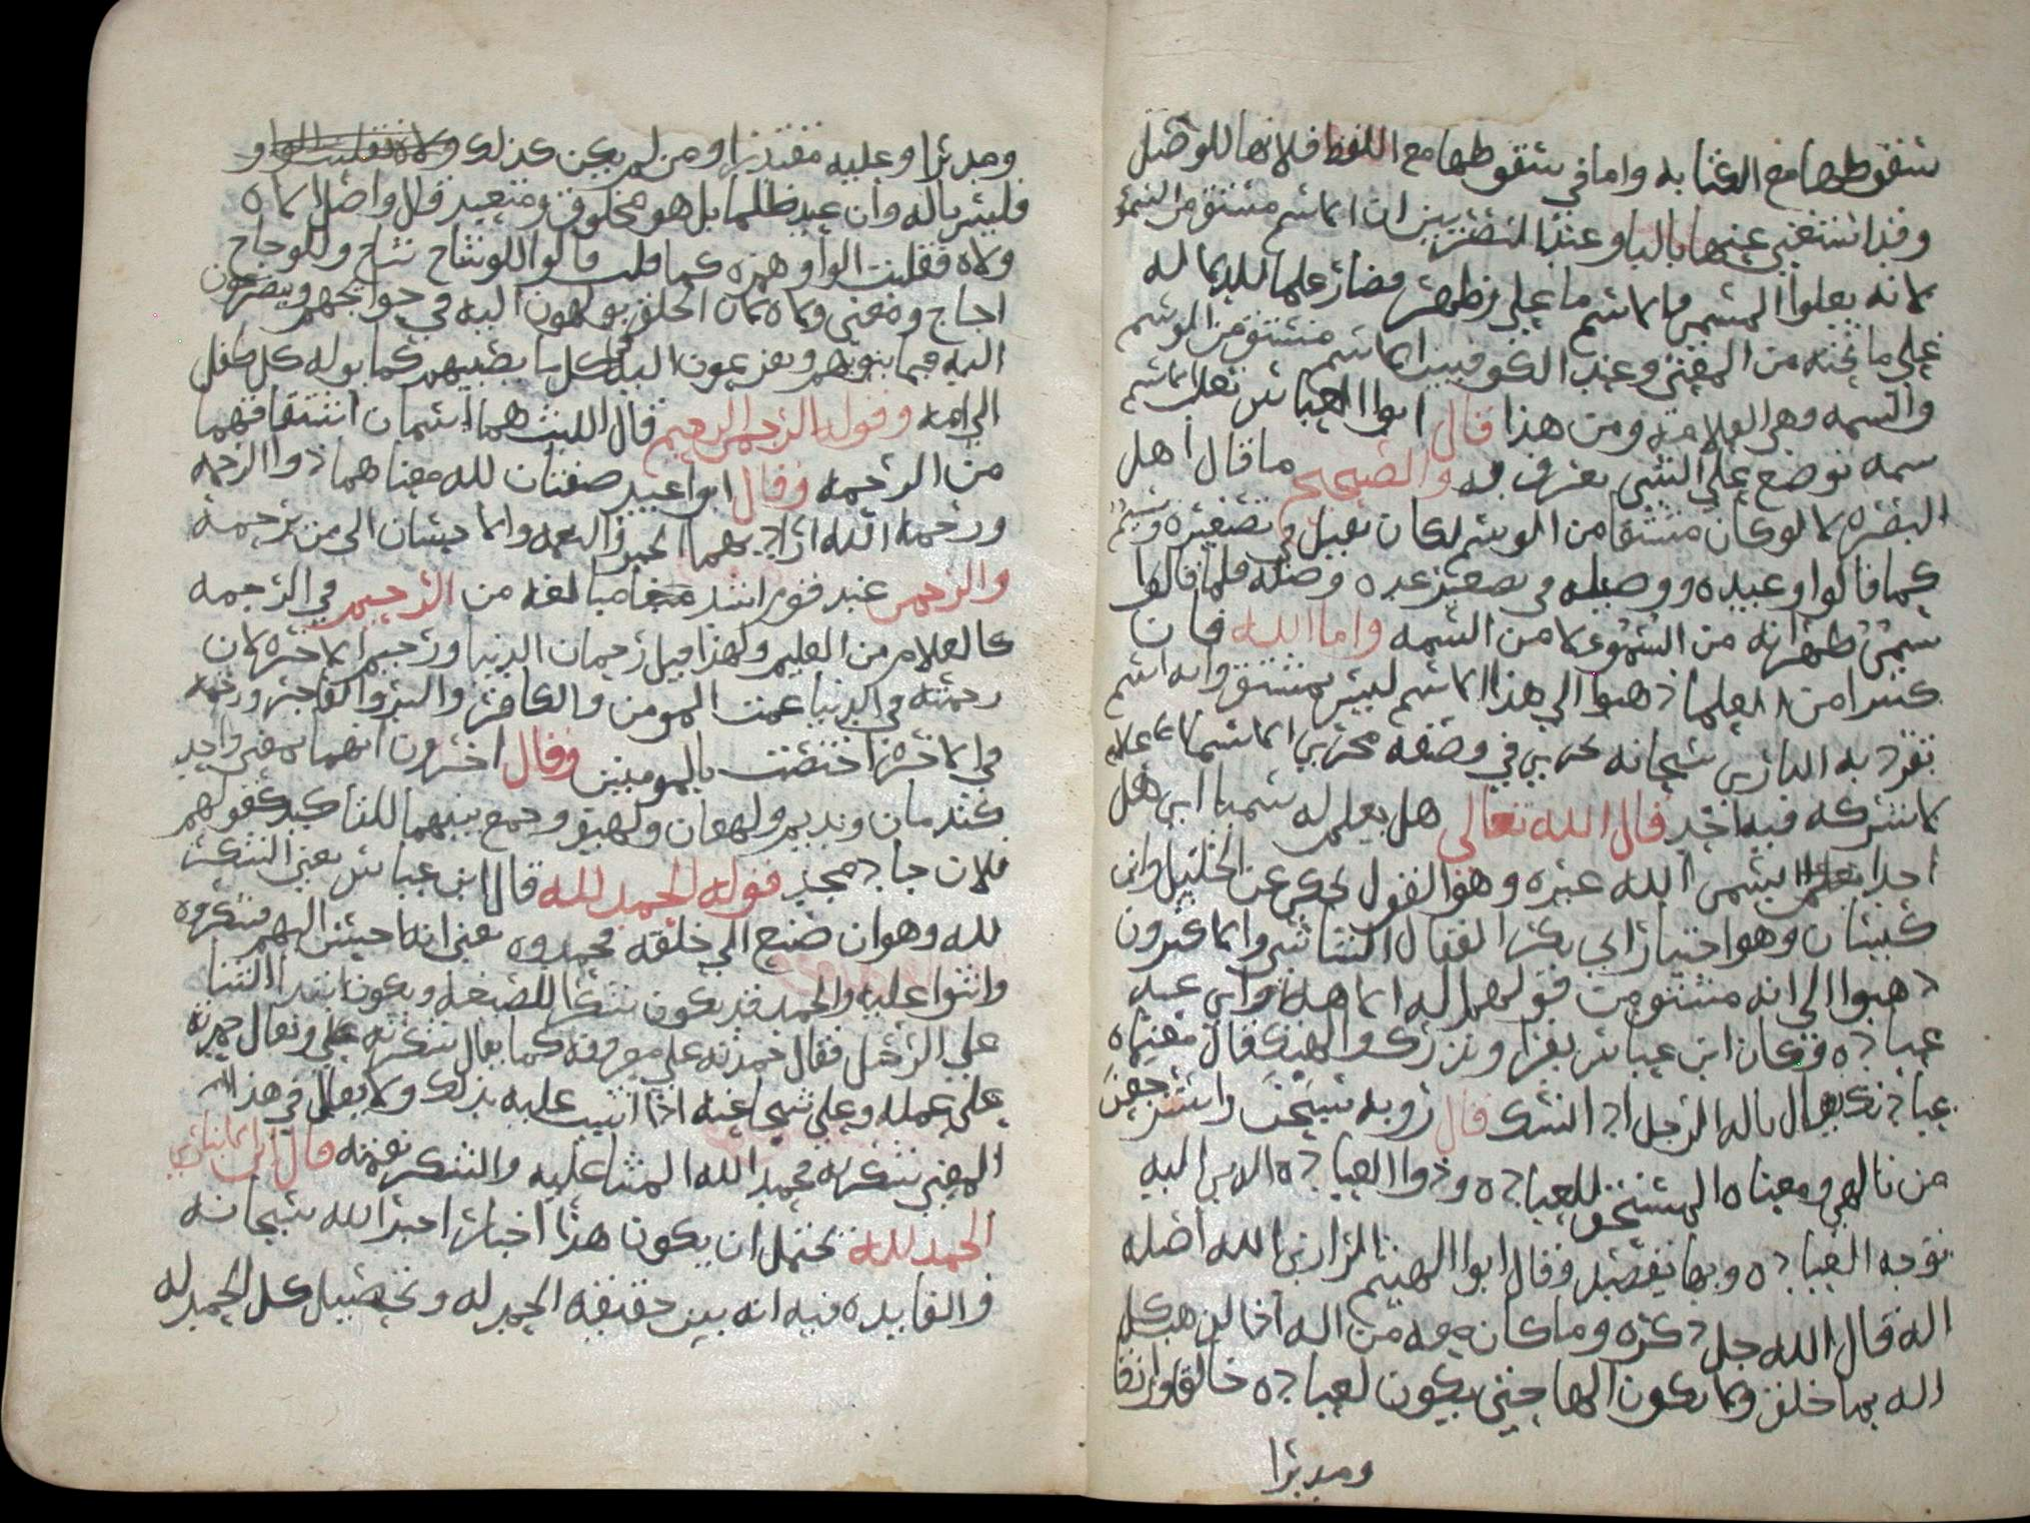 سقوطها مع الكتابه واما في سقوطها مع اللفظ فلانها للوصل
وقد استغنى عنها بالبا وعند البصريين ان الاسم مشتق من السمو
لانه يعلوا المسمى فالاسم ما على وظهر فصار علما للدلاله
على ما تحته من المعنى وعند الكوفيين الاسم مشتق من الوسم
والسمه وهي العلامة ومن هذا قال ابوا العباس ثعلب الاسم
سمه توضع على الشي يعرف به والصحيح ما قال اهل
البصره لانه لو كان مشتقا من الوسم لكان يقيل في تصغيره وسيم
كما قالوا وعيده ووصيله في تصغير عده وصله فلما قالوا
سمي ظهر انه من السمو لا من السمه واما الله فان
كثيرا من العلما ذهبوا الى هذا الاسم ليس بمشتق وانه اسم
تفرد به الباري سبحانه يجري في وصفه مجرى الاسما الاعلام
لا يشركه فيه احد قال الله تعالى هل يعلم له سميا اي هل
احدا يسمى الله غيره وهذا القول يحكى عن الخليل وابن
كيسان وهو اختيار ابي بكر القفال الشاشي والاكثرون
ذهبوا الى انه مشتق من قولهم اله الاهة اي عبد
عباده وكان ابن عباس يقرا ويذرك والهتك قال معناه
عبادتك يقال تاله الرجل اذا نسك قال روبه سبحن واسترجعن
من تالهي ومعناه المستحق للعباده وذوا العباده الذي اليه
توجه العباده وبها يقصد وقال ابوا الهيثم الرازي الله اصله
اله قال الله جل ذكره وما كان معه من اله اذا لذهب كل
اله بما خلق ولا يكون الها حتى يكون لعباده خالقا ورازقا
ومدبرا
ومدبرا وعليه مقتدرا ومن لم يكن كذلك
فليس باله وان عبد ظلما بل هو مخلوق ومتعبد قال واصل الاه
ولاه فقلبت الواو همزه كما قالوا للوشاح اشاح وللوجاح
اجاح ومعنى ولاه ان الخلق يولهون اليه في حوايجهم ويضرعون
اليه فيما ينوبهم ويفزعون اليه في كل ما يصيبهم كما يوله كل طفل
الى امه وقوله الرحمن الرحيم قال الليث هما اسمان اشتقاقهما
من الرحمه وقال ابوا عبيد صفتان لله معناهما ذوا الرحمه
ورحمة الله ارادتهما الخير والنعمه والاحسان الى من يرحمه
والرحمن عند قوم اشد مبالغه من الرحيم في الرحمه
كالعلام من العليم ولهذا قيل رحمان الدنيا ورحيم الاخره لان
رحمته في الدنيا عمت المومن والكافر والبر والفاجر ورحمته
في الاخره اختصت بالمومنين وقال اخرون انهما بمعنى واحد
كندمان ونديم ولهفان ولهيف وجمع بينهما للتاكيد كقولهم
فلان جاد مجد قوله الحمد لله قال ابن عباس يعني الشكر
لله وهو ان صنع الى خلقه فحمدوه يعني انه احسن اليهم فشكروه
واثنوا عليه والحمد قد يكون شكرا للصنعه ويكون ابتدا الثنا
على الرجل فقال حمدته على معروفه كما يقال شكرته عليه ويقال حمدته
على عمله وعلى شجاعته اذا اثنيت عليه بذلك ولا يقال في هذا
المعنى شكرته فحمد الله الثنا عليه والشكر نعمته قال ابن الانباري
الحمد لله يحتمل ان يكون هذا اخبارا اخبر الله سبحانه
والفايده فيه انه بين حقيقه الحمد له وتحصيل كل الحمد له